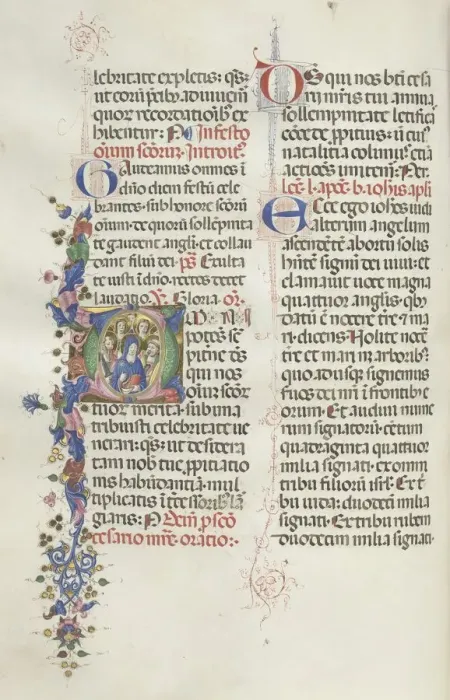 lebritate expletis: qs:
ut eorū p̄cibꝫ adiuuem̄
quoꝝ recordatiōibꝫ ex
hibentur: P In festo
oīum sc̄oꝝ. Introit9.
Gaudeamus omnes ī
dn̄o diem festū cele
brantes · sub honore sc̄oꝝ
oīum: de quoꝝ sollēpnita
te gaudent angl̄i: et collau
dant filiū dei · p̄s Exulta
te iusti ī dn̄o: rectos decet
laudatio. V̄. Gloria. or̄.
OMNI
potēs sē
pit̄ne d's
qui nos
oīum sc̄oꝝ
merita · sub una
tribuisti celebritate ue
nerari: qs: ut desidera
tam nob̄ tue ꝓpitiatio
nis habūdantiā · mul
tiplicatis īt̄cessoribꝫ la
giaris: P Dein p sc̄o
cesario mr̄e · oratio:·
DS qui nos bt̄i cesa
rij mr̄is tui annua
sollempnitate letificas
cōcede ꝓpitius: ut cuī9
natalitia colimus etiā
actiōes imitem̄: Per.
lc̄c. l. apoc̄. b. ioh̄is apl̄i
Ecce ego ioh̄es uidi
alterum angelum
ascendētē ab ortu solis
hn̄tē signū dei uiui: et
clamauit uoce magna
quattuor angl̄is · qibꝫ
datū ē nocere tr̄e ⁊ ma
ri · dicens · Nolite noce
tr̄e et mari neqꝫ arboribꝫ
quo adusqꝫ signemus
suos dei nr̄i ī frontibꝫ e
orum · Et audiui nume
rum signatorū · cētum
quadraginta quattuor
milia signati · ex omni
tribu filiorū isrl̄ · Ex t̄
bu iuda: duodecī milia
signati · Ex tribu ruben
duodecim milia signati·